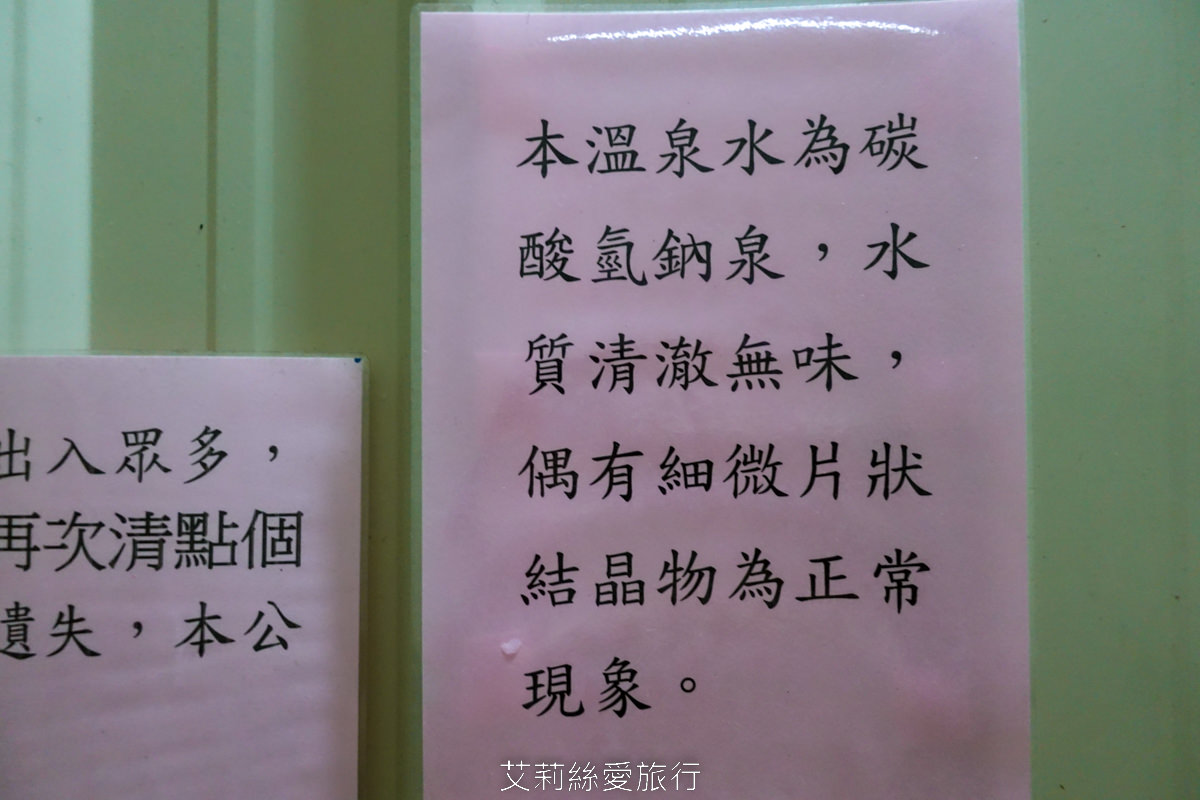 本溫泉水為碳
酸氫鈉泉，水
質清澈無味，
偶有細微片狀
結晶物為正常
現象。
出入眾多，
再次清點個
遺失，本公
艾莉絲愛旅行